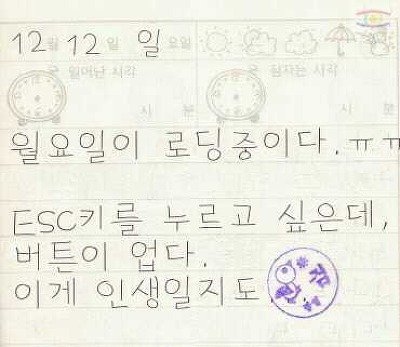 12월 12일 일요일
일어난 시각
잠자는 시각
시 분
시 분
월요일이 로딩중이다.ㅠㅠ
ESC키를 누르고 싶은데,
버튼이 업다.
이게 인생일지도.